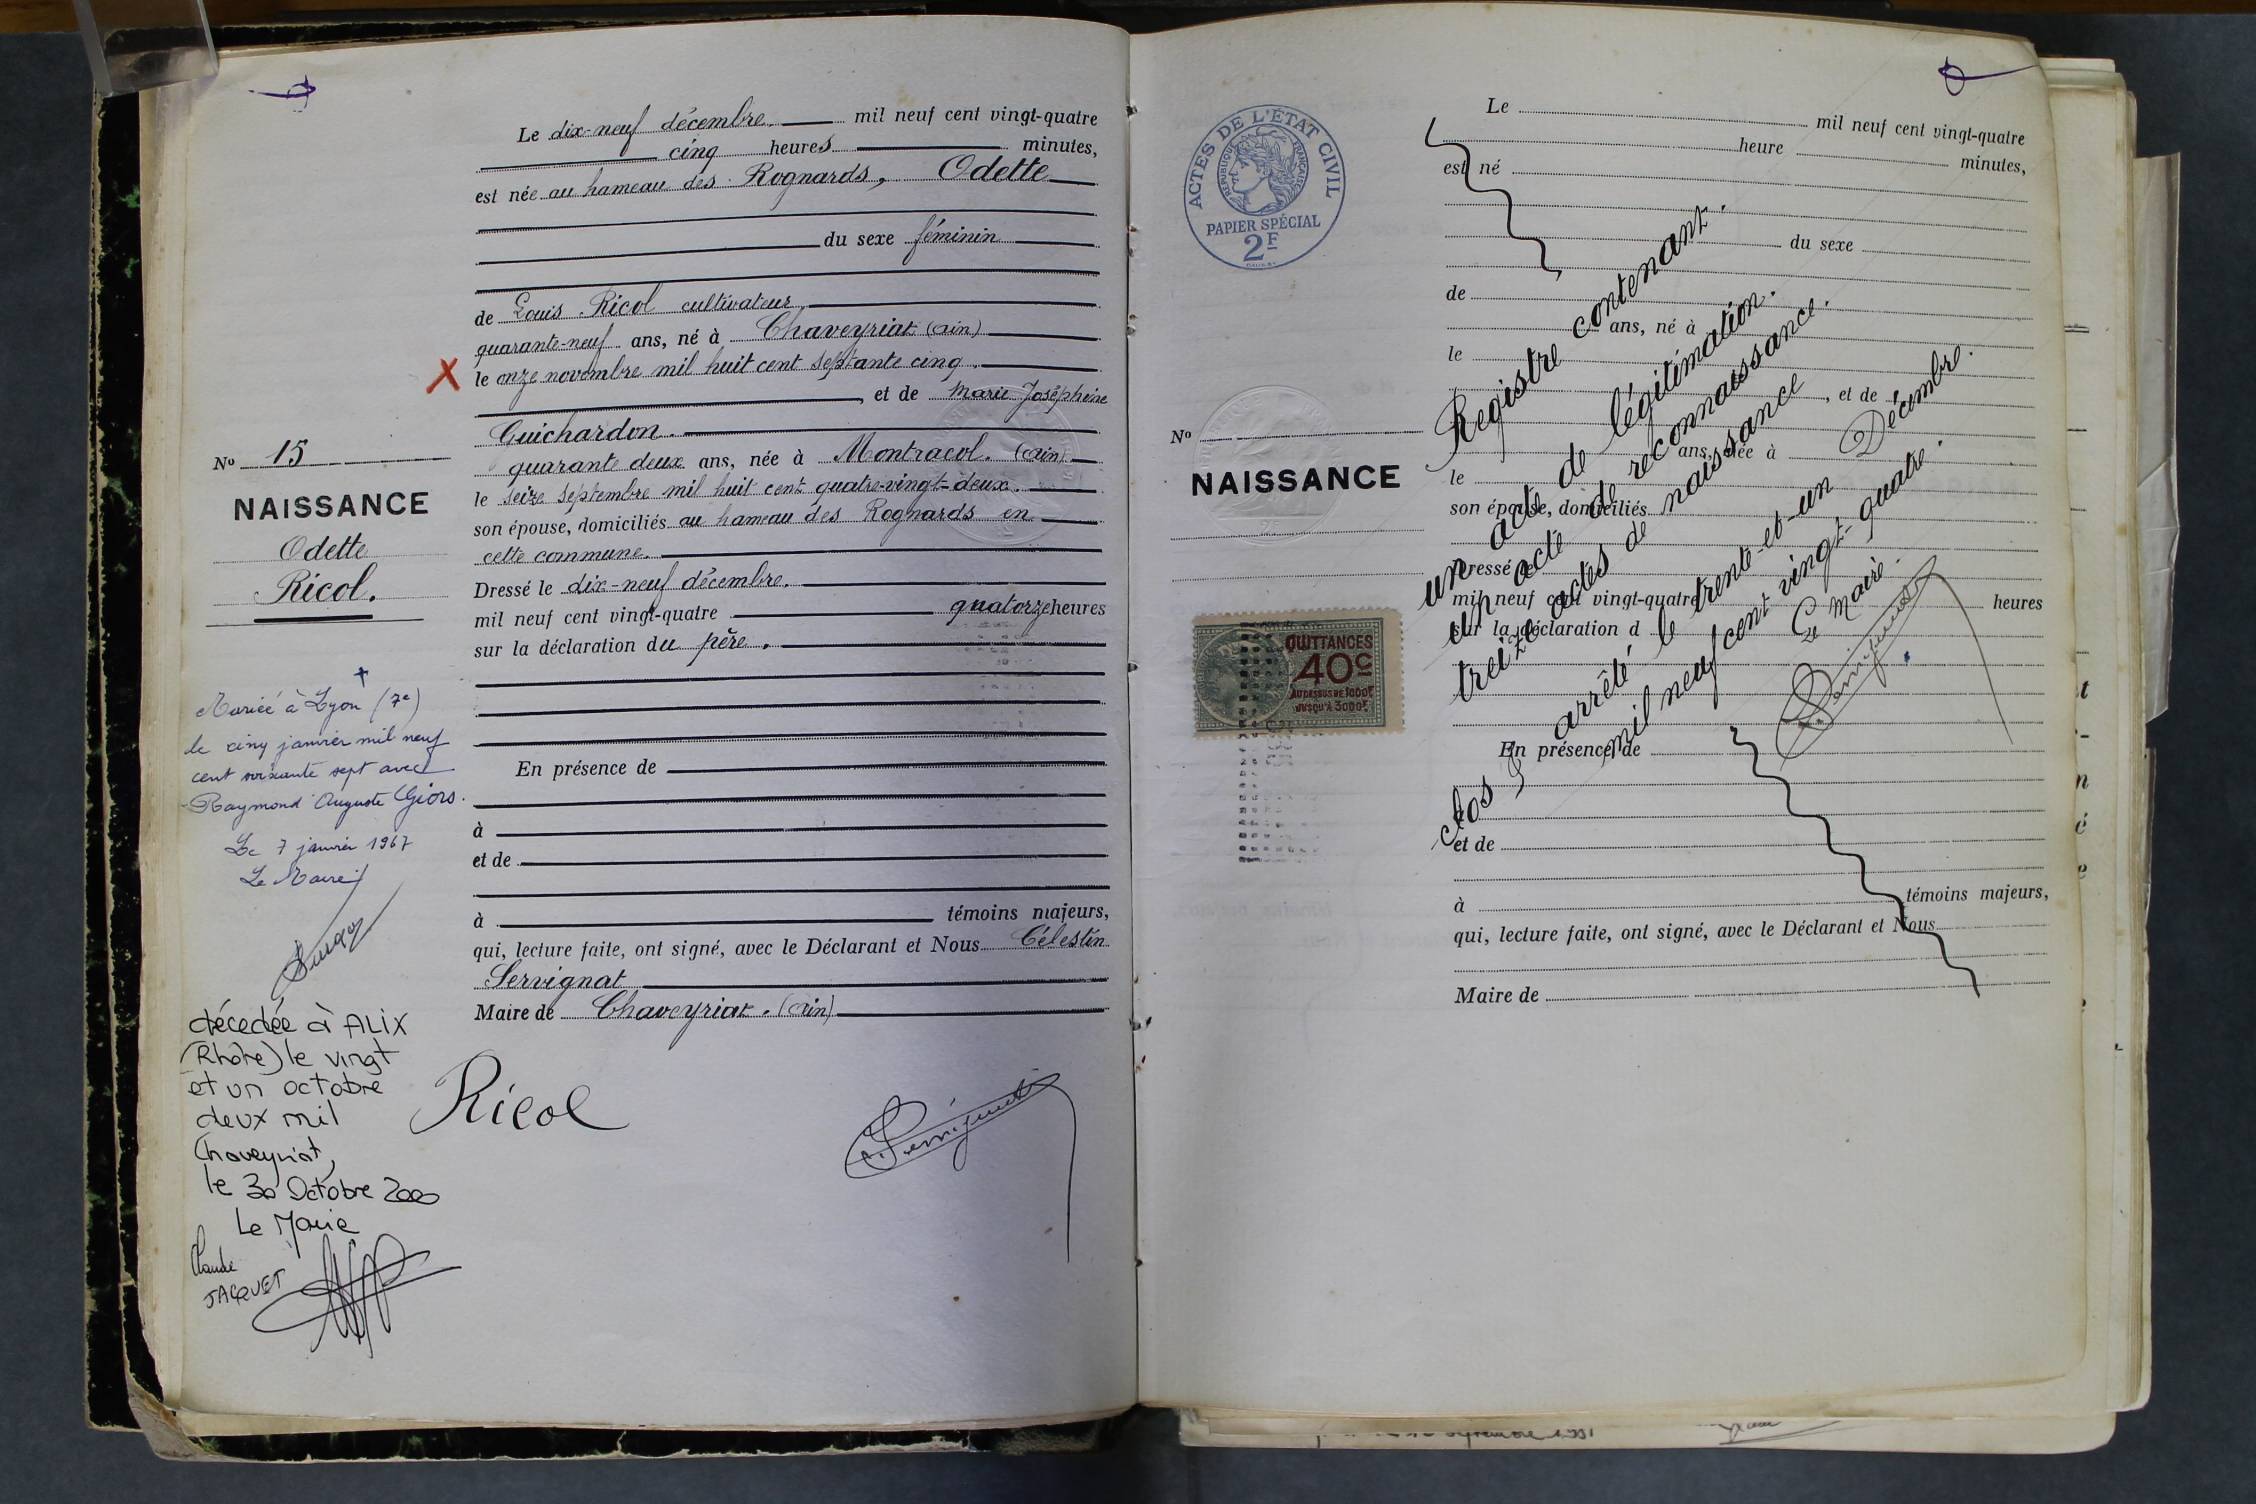 Le dix-neuf décembre mil neuf cent vingt-quatre
cinq heures minutes,
est née au hameau des Rognards, Odette
du sexe féminin
de Louis Ricol cultivateur,
quarante-neuf ans, né à Chaveyriat (Ain)
le onze novembre mil huit cent septante cinq.
, et de Marie Joséphine
Guichardon.
quarante deux ans, née à Montracol. (Ain)
le seize septembre mil huit cent quatre-vingt-deux.
son épouse, domiciliés au hameau des Rognards en
cette commune.
Dressé le dix-neuf décembre.
mil neuf cent vingt-quatre quatorze heures
sur la déclaration du père.
En présence de
à
et de
à témoins majeurs,
qui, lecture faite, ont signé, avec le Déclarant et Nous Célestin
Servignat
Maire de Chaveyriat. (Ain)
Ricol
No 15
NAISSANCE
Odette
Ricol.
Mariée à Lyon (7e)
le cinq janvier mil neuf
cent soixante sept avec
Raymond Auguste Giors.
Le 7 janvier 1967
Le Maire
décedée à ALIX
(Rhône) le vingt
et un octobre
deux mil
Chaveyriat,
le 30 Octobre 2000
Le Maire
Claude
JACQUET
ACTES DE L'ÉTAT CIVIL
RÉPUBLIQUE FRANÇAISE
PAPIER SPÉCIAL
2F
No
NAISSANCE
QUITTANCES
40c
AU DESSUS DE 1000F
JUSQU'À 3000F
Le mil neuf cent vingt-quatre
heure minutes,
est né
du sexe
de
ans, né à
le
, et de
ans, née à
le
son épouse, domiciliés
Dressé le
mil neuf cent vingt-quatre heures
sur la déclaration d
En présence de
et de
à témoins majeurs,
qui, lecture faite, ont signé, avec le Déclarant et Nous
Maire de
Registre contenant.
un acte de légitimation.
un acte de reconnaissance.
treize actes de naissance
clos & arrêté le trente-et-un Décembre.
mil neuf cent vingt-quatre.
Le Maire.